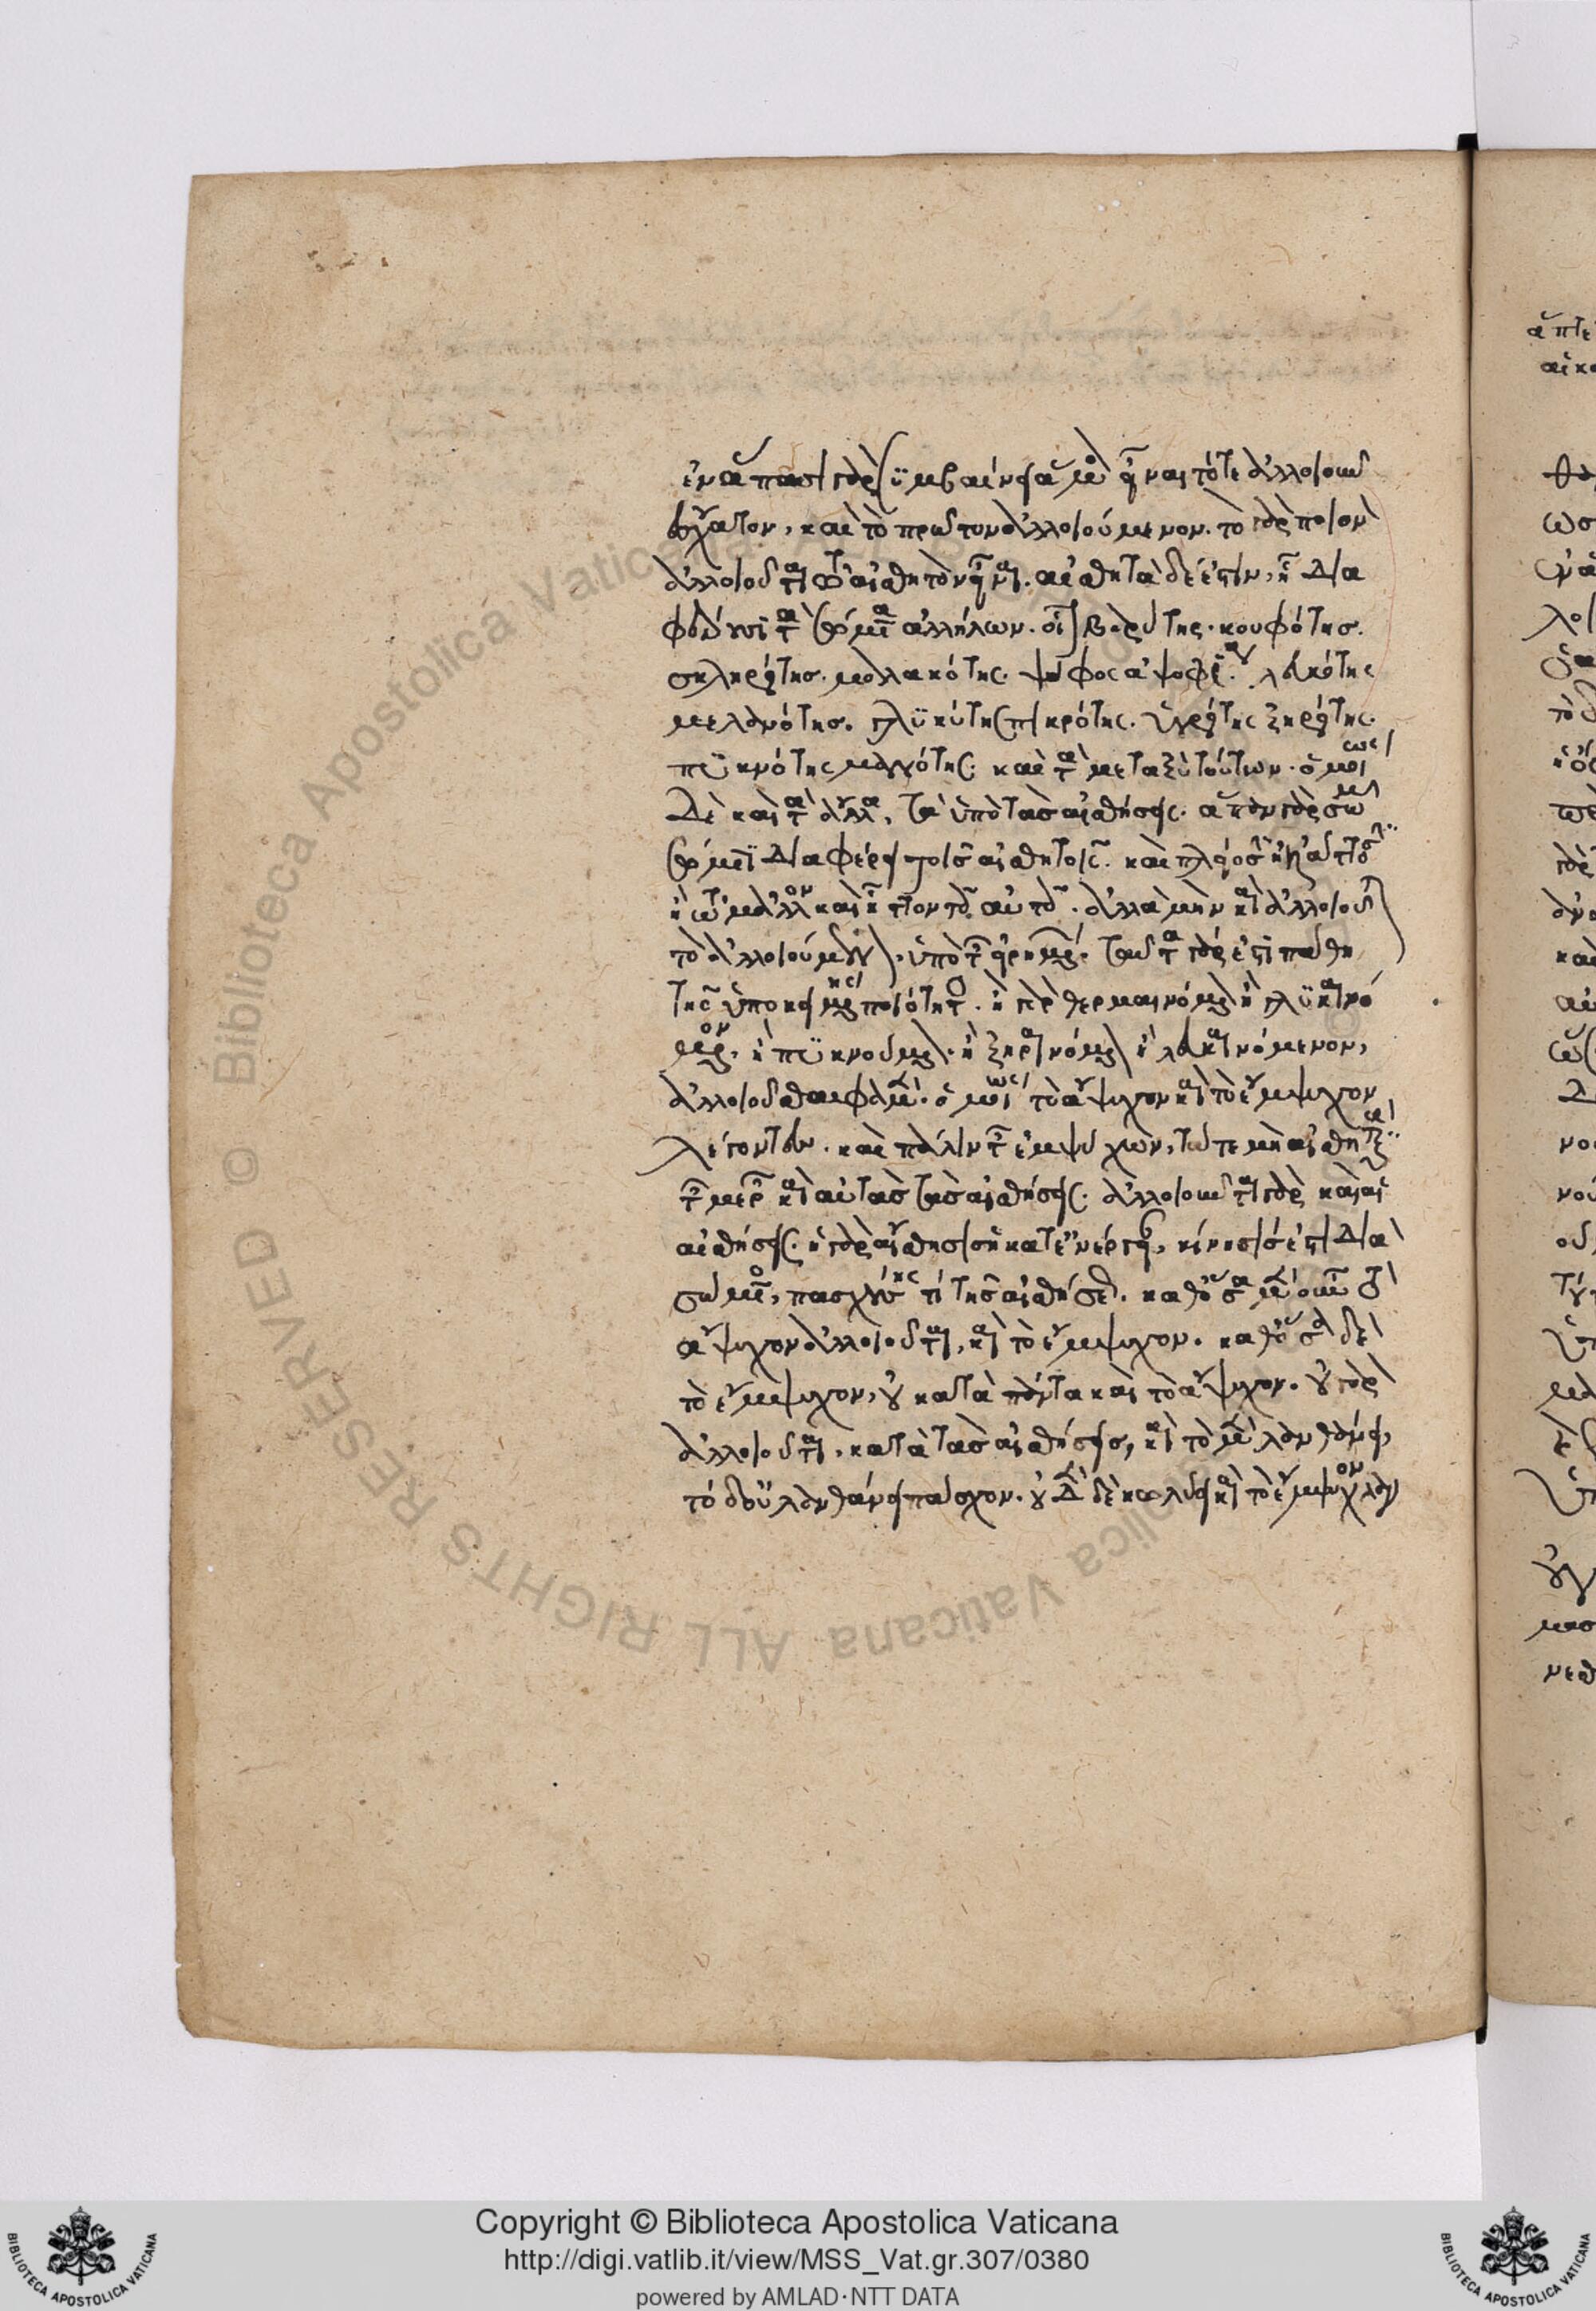 ἐν ἅπασι γὰρ συμβαίνει ἅμα εἶναι τό τε ἀλλοιοῦν
ἔσχατον, καὶ τὸ πρῶτον ἀλλοιούμενον. τὸ γὰρ ποιὸν
ἀλλοιοῦται τῷ αἰσθητὸν εἶναι. αἰσθητὰ δέ ἐστιν, οἷς δια
φέρουσι τὰ σώματα ἀλλήλων. οἷον βαρύτης. κουφότης.
σκληρότης. μαλακότης. ψόφος ἀψοφία. λευκότης
μελανότης. γλυκύτης πικρότης. ὑγρότης ξηρότης.
πυκνότης μανότης. καὶ τὰ μεταξὺ τούτων. ὁμοίως
δὲ καὶ τὰ ἄλλα, τὰ ὑπὸ τὰς αἰσθήσεις. ἅπαν γὰρ σῶμα
σώματος διαφέρει τοῖς αἰσθητοῖς. καὶ πλείοσιν ἢ ἐλάττοσιν
ἢ τῷ μᾶλλον καὶ ἧττον τοῖς αὐτοῖς. ἀλλὰ μὴν καὶ ἀλλοιοῦται
τὸ ἀλλοιούμενον, ὑπὸ τῶν εἰρημένων. ταῦτα γάρ ἐστι πάθη
τῆς ὑποκειμένης ποιότητος. ἢ γὰρ θερμαινόμενον ἢ γλυκαινό
μενον. ἢ πυκνούμενον. ἢ ξηραινόμενον ἢ λευκαινόμενον,
ἀλλοιοῦσθαι φαμέν. ὁμοίως τὸ ἄψυχον καὶ τὸ ἔμψυχον
λέγοντες. καὶ πάλιν τῶν ἐμψύχων, τά τε μὴ αἰσθητικὰ
τῶν μερῶν καὶ αὐτὰς τὰς αἰσθήσεις. ἀλλοιοῦνται γὰρ καὶ αἱ
αἰσθήσεις. ἡ γὰρ αἴσθησις ἡ κατ' ἐνέργειαν, κίνησίς ἐστι διὰ
σώματος, πασχούσης τι τῆς αἰσθήσεως. καθ' ὅσα μὲν οὖν τὸ
ἄψυχον ἀλλοιοῦται, καὶ τὸ ἔμψυχον. καθ' ὅσα δὲ
τὸ ἔμψυχον, οὐ κατὰ πάντα καὶ τὸ ἄψυχον. οὐ γὰρ
ἀλλοιοῦται, κατὰ τὰς αἰσθήσεις, καὶ τὸ μὲν λανθάνει,
τὸ δ' οὐ λανθάνει πάσχον. οὐδὲν δὲ κωλύει καὶ τὸ ἔμψυχον λαν
Copyright © Biblioteca Apostolica Vaticana
http://digi.vatlib.it/view/MSS_Vat.gr.307/0380
powered by AMLAD·NTT DATA